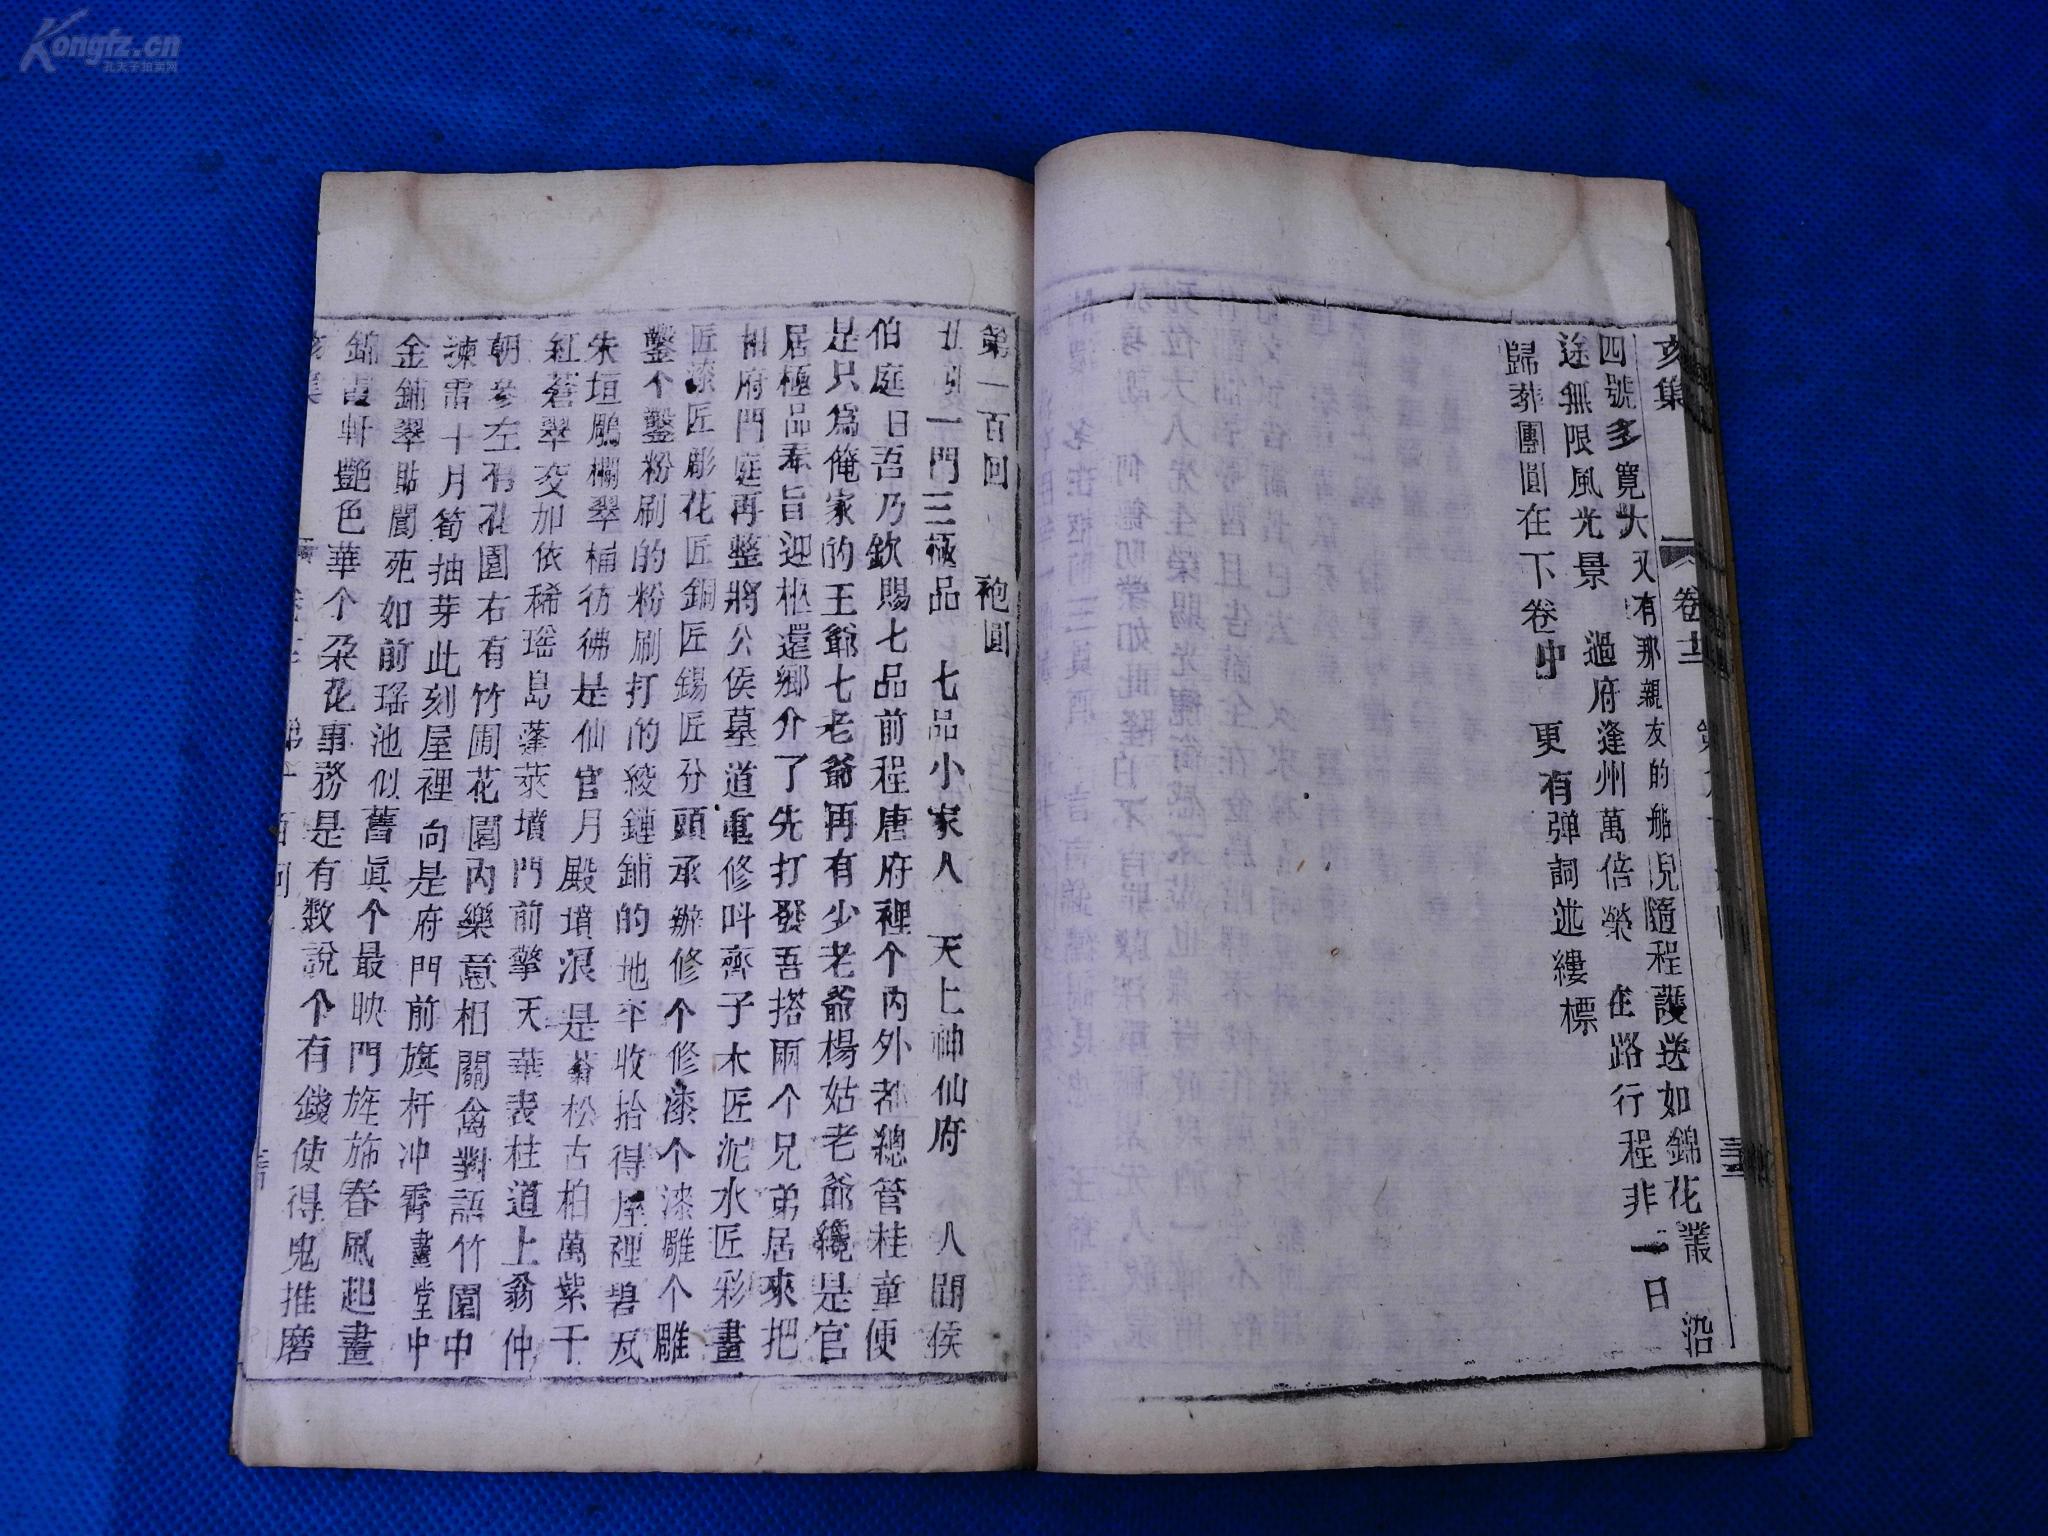 Kongfz.cn
孔夫子拍卖网
亥集 卷十二
四號多寬大又有那親友的船況隨程護送如錦花叢 沿
途無限風光景 過府逢州萬倍榮 在路行程非一日
歸葬團圓在下卷中 更有弹詞述縷標
第一百回 袍圓
一門三極品 七品小家人 天上神仙府 人間侯
伯庭日吾乃欽賜七品前程唐府裡个内外都總管桂童便
是只爲俺家的王爺七老爺再有少老爺楊姑老爺纔是官
居極品奉旨迎柩還鄉介了先打發吾搭兩个兄弟居來把
相府門庭再整將公侯墓道重修叫齊子木匠泥水匠彩畫
匠漆匠彫花匠銅匠錫匠分頭承辦修个修漆个漆雕个雕
鑿个鑿粉刷的粉刷打的綾鏈鋪的地平收拾得屋裡碧瓦
朱垣雕欄翠桷彷彿是仙官月殿墳浪是蒼松古柏萬紫千
紅蒼翠交加依稀瑶島蓬萊墳門前擎天華表柱道上翁仲
朝參左有花園右有竹圃花園内樂意相關禽對語竹園中
揀雷十月筍抽芽此刻屋裡向是府門前旗杆冲霄畫堂中
金鋪翠貼閬苑如前瑶池似舊眞个最映門旌斾春風起畫
錦霞軒艷色華个朶花事務是有数說个有錢使得鬼推磨